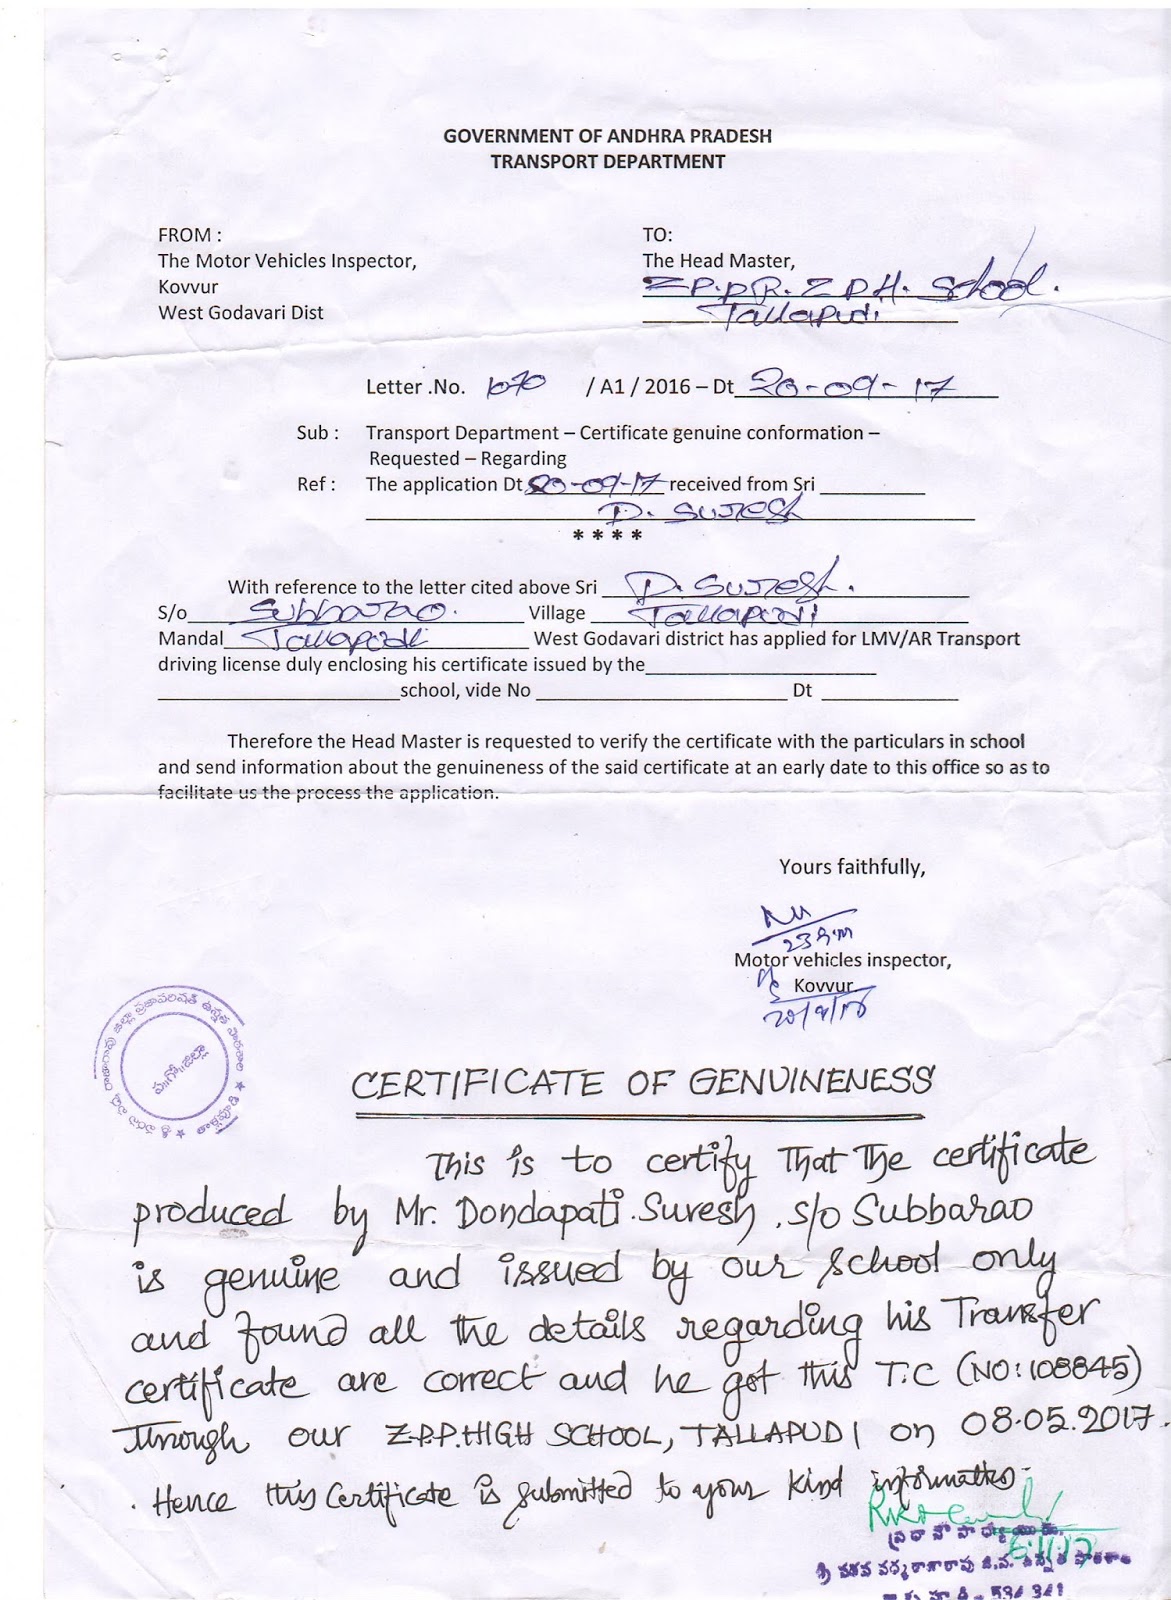 GOVERNMENT OF ANDHRA PRADESH
TRANSPORT DEPARTMENT
FROM :
The Motor Vehicles Inspector,
Kovvur
West Godavari Dist
TO:
The Head Master,
Z.P.P.R. Z P H. School.
Tallapudi
Letter .No. 1070 / A1 / 2016 – Dt 20-09-17
Sub : Transport Department – Certificate genuine conformation –
Requested – Regarding
Ref : The application Dt 20-09-17 received from Sri
D. SURESH
* * * *
With reference to the letter cited above Sri D. Suresh.
S/o Subbarao. Village Tallapudi
Mandal Tallapudi West Godavari district has applied for LMV/AR Transport
driving license duly enclosing his certificate issued by the
school, vide No Dt
Therefore the Head Master is requested to verify the certificate with the particulars in school
and send information about the genuineness of the said certificate at an early date to this office so as to
facilitate us the process the application.
Yours faithfully,
Motor vehicles inspector,
Kovvur
CERTIFICATE OF GENUINENESS
This is to certify That The certificate
produced by Mr. Dondapati.Suresh, s/o Subbarao
is genuine and issued by our school only
and found all the details regarding his Transfer
certificate are correct and he got this T.C (NO:108845)
Through our Z.P.P.HIGH SCHOOL, TALLAPUDI on 08.05.2017.
Hence this Certificate is submitted to your kind information.
6/11/17
534 341